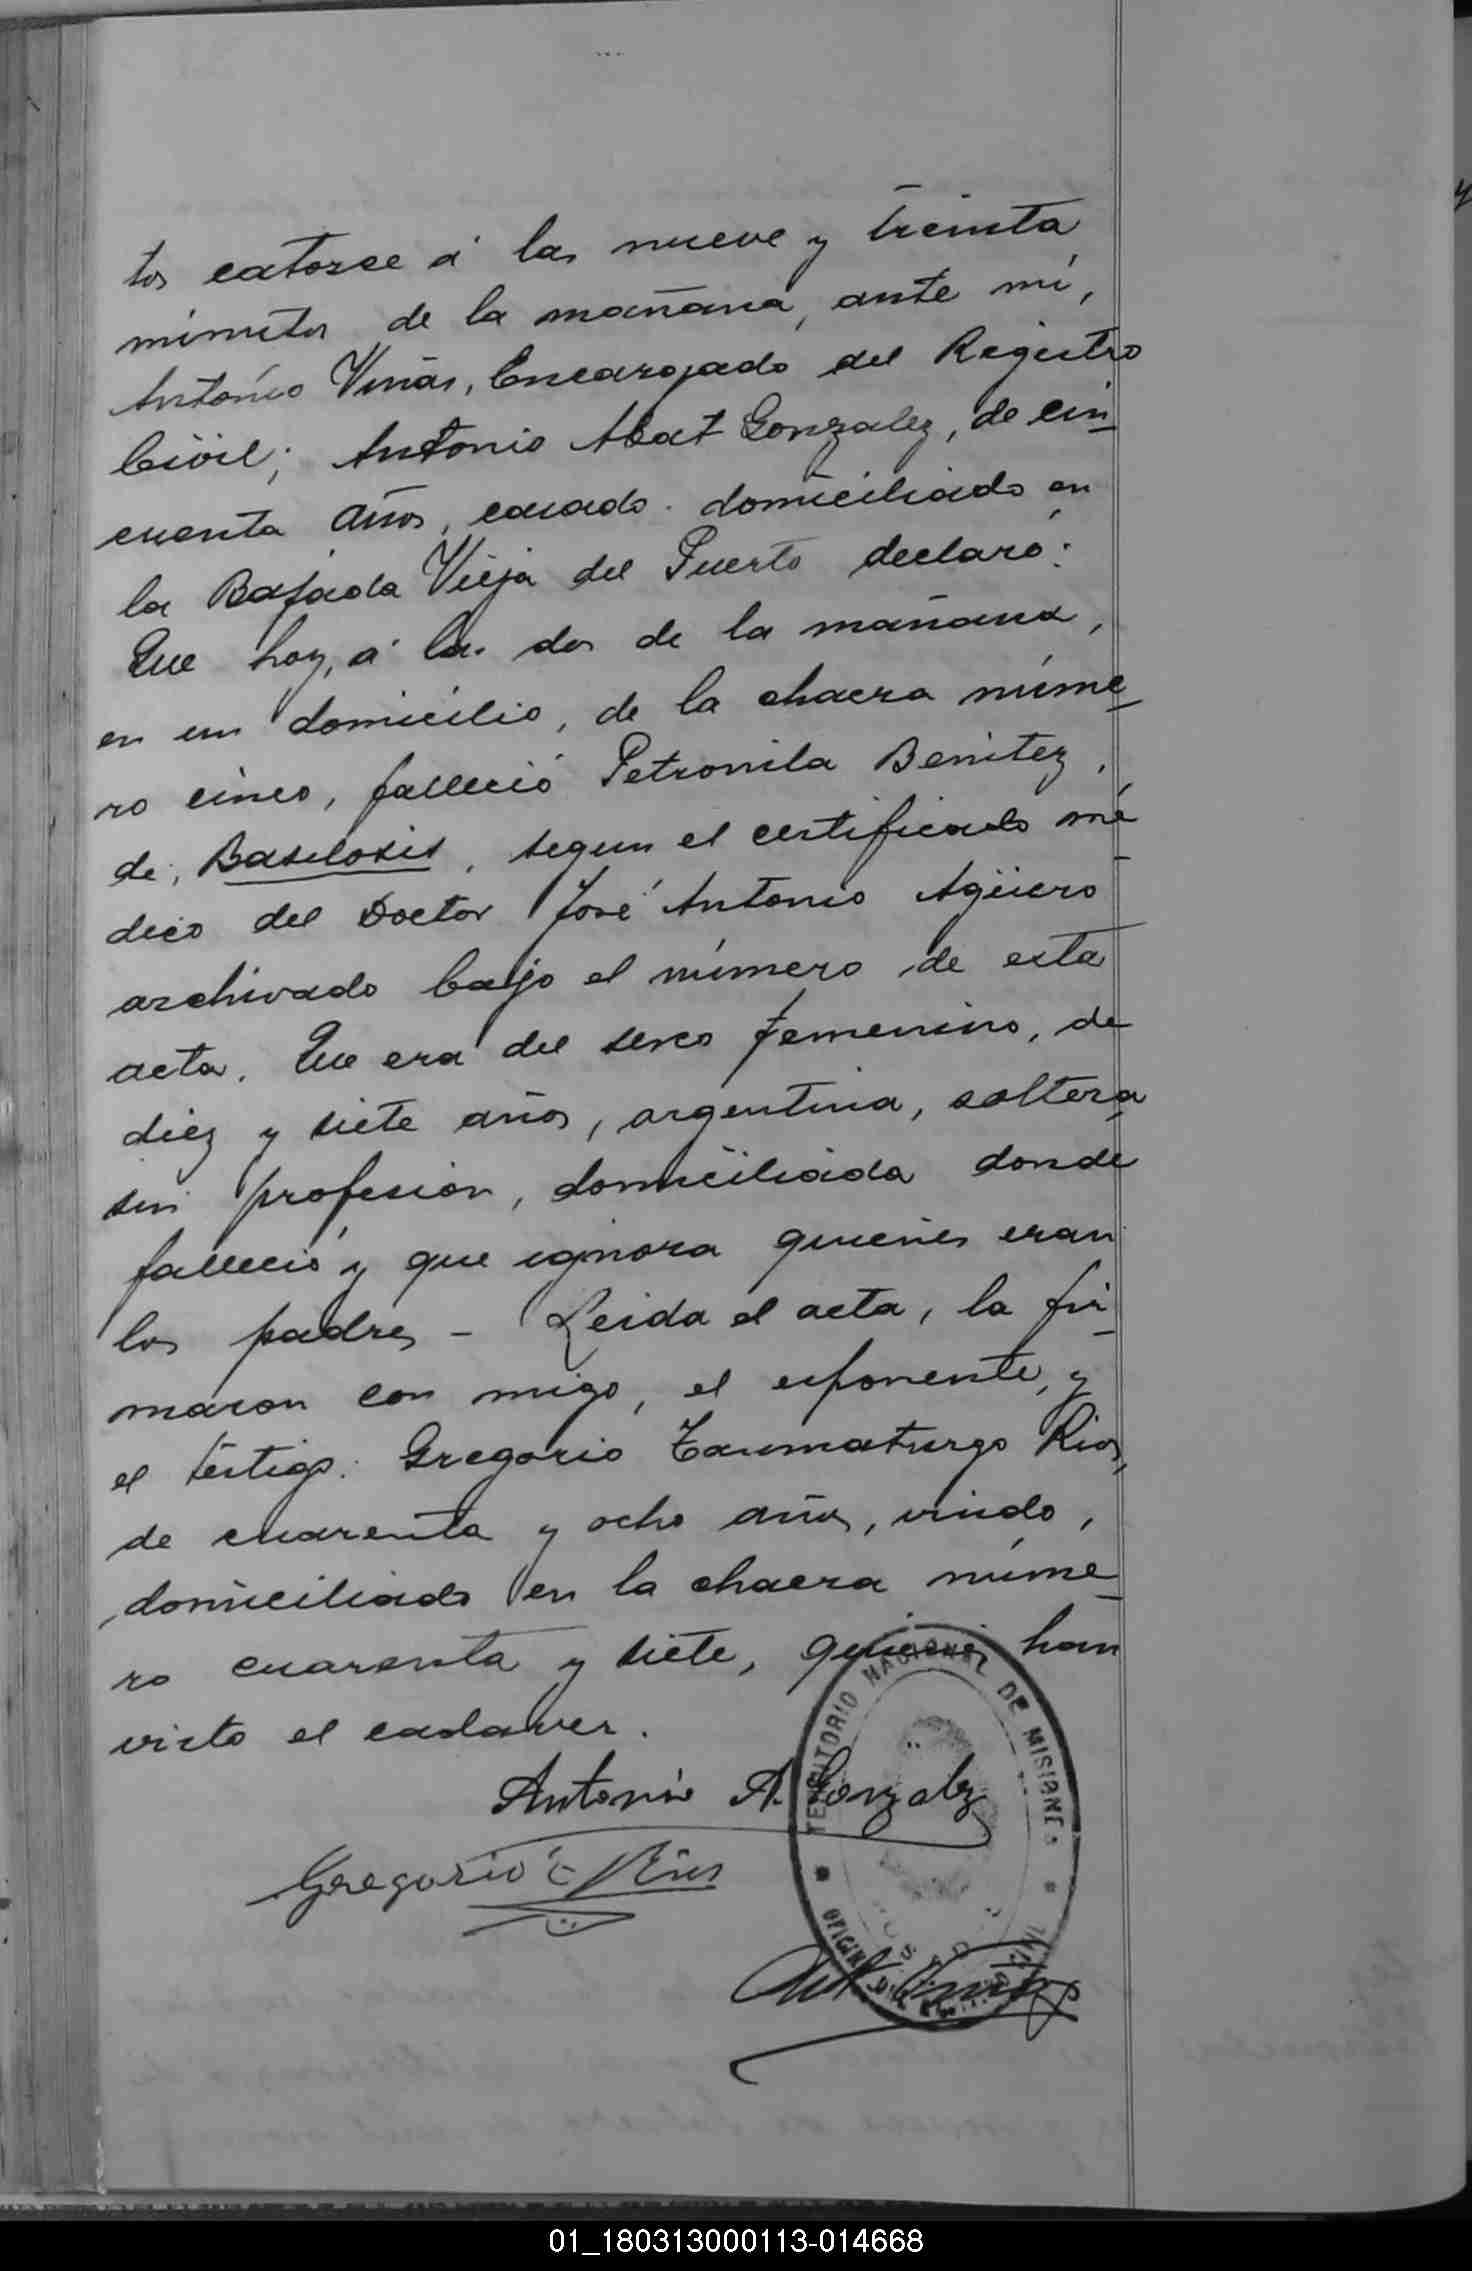 tos catorce á las nueve y treinta
minutos de la mañana, ante mí,
Antonio Viñas, Encargado del Registro
Civil; Antonio Abat Gonzalez, de cin
cuenta años, casado. domiciliado en
la Bajada Vieja del Puerto declaró:
Que hoy, á las dos de la mañana,
en su domicilio, de la chacra núme
ro cinco, falleció Petronila Benitez,
de, Basilosis, segun el certificado mé
dico del Doctor José Antonio Agüero
archivado bajo el número de esta
acta. Que era del sexo femenino, de
diez y siete años, argentina, soltera
sin profesion, domiciliada donde
falleció y que ignora quienes eran
los padres - Leida el acta, la fir
maron con migo, el exponente, y
el testigo: Gregorio Taumaturgo Rios,
de cuarenta y ocho años, viudo,
domiciliado en la chacra núme
ro cuarenta y siete, quienes han
visto el cadaver.
Antonio A. Gonzalez
Gregorio T Rios
Ant Viñas
TERRITORIO NACIONAL DE MISIONES
OFICINA DEL CIVIL
01_180313000113-014668